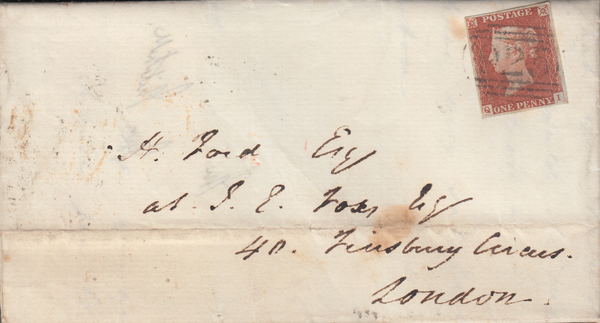 POSTAGE
ONE PENNY
H. Ford Esq
at J. E. Fox's Esq
40. Finsbury Circus.
London.